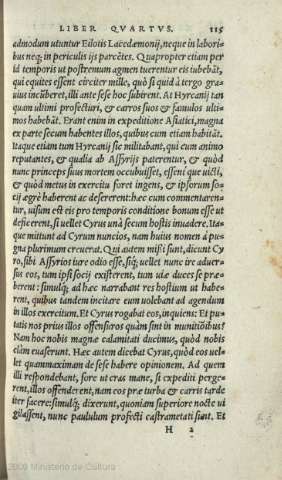 LIBER QVARTVS. 115
admodum utuntur Eilotis Lacedæmonij, neque in labori-
bus neq; in periculis ijs parcẽtes. Quapropter etiam per
id temporis ut postremum agmen tuerentur eis iubebãt,
qui equites essent circiter mille, quò si quid à tergo gra-
uius incũberet, illi ante sese hoc subirent. At Hyrcanij tan
quam ultimi profecturi, & carros suos & famulos ulti-
mos habebãt. Erant enim in expeditione Asiatici, magna
ex parte secum habentes illos, quibus cum etiam habitãt.
Itaque etiam tum Hyrcani sic militabant, qui cum animo
reputantes, & qualia ab Assyrijs paterentur, & quòd
nunc princeps suus mortem occubuisset, essent que uicti,
& quòd metus in exercitu foret ingens, & ipsorum so-
cij ægrè haberent ac desererent: hæc cum commentaren-
tur, uisum est eis pro temporis conditione bonum esse ut
deficerent, si uellet Cyrus unà secum hostis inuadere. Ita-
que mittunt ad Cyrum nuncios, nam huius nomen à pu-
gna plurimum creuerat. Qui autem missi sunt, dicunt Cy
ro, sibi Assyrios iure odio esse, siq; uellet nunc ire aduer-
sus eos, tum ipsi socij existerent, tum uiæ duces se præ-
berent: simulq; ad hæc narrabant res hostium ut habe-
rent, quibus tandem incitare eum uolebant ad agendum
in illos exercitum. Et Cyrus rogabat eos, inquiens: Et pu-
tatis nos prius illos offensuros quàm sint in munitiõibus?
Nam hoc nobis magnæ calamitati ducimus, quòd nobis
clàm euaserunt. Hæc autem dicebat Cyrus, quòd eos uel-
let quammaximam de sese habere opinionem. Ad quem
illi respondebant, fore ut cras mane, si expediti perge-
rent, illos offenderent, nam eos præ turba & carris tarde
iter facere: simulq; dixerunt, quoniam superiore nocte ui
gilassent, nunc paululum profecti castrametati sunt. Et
H 2
2009 Ministerio de Cultura